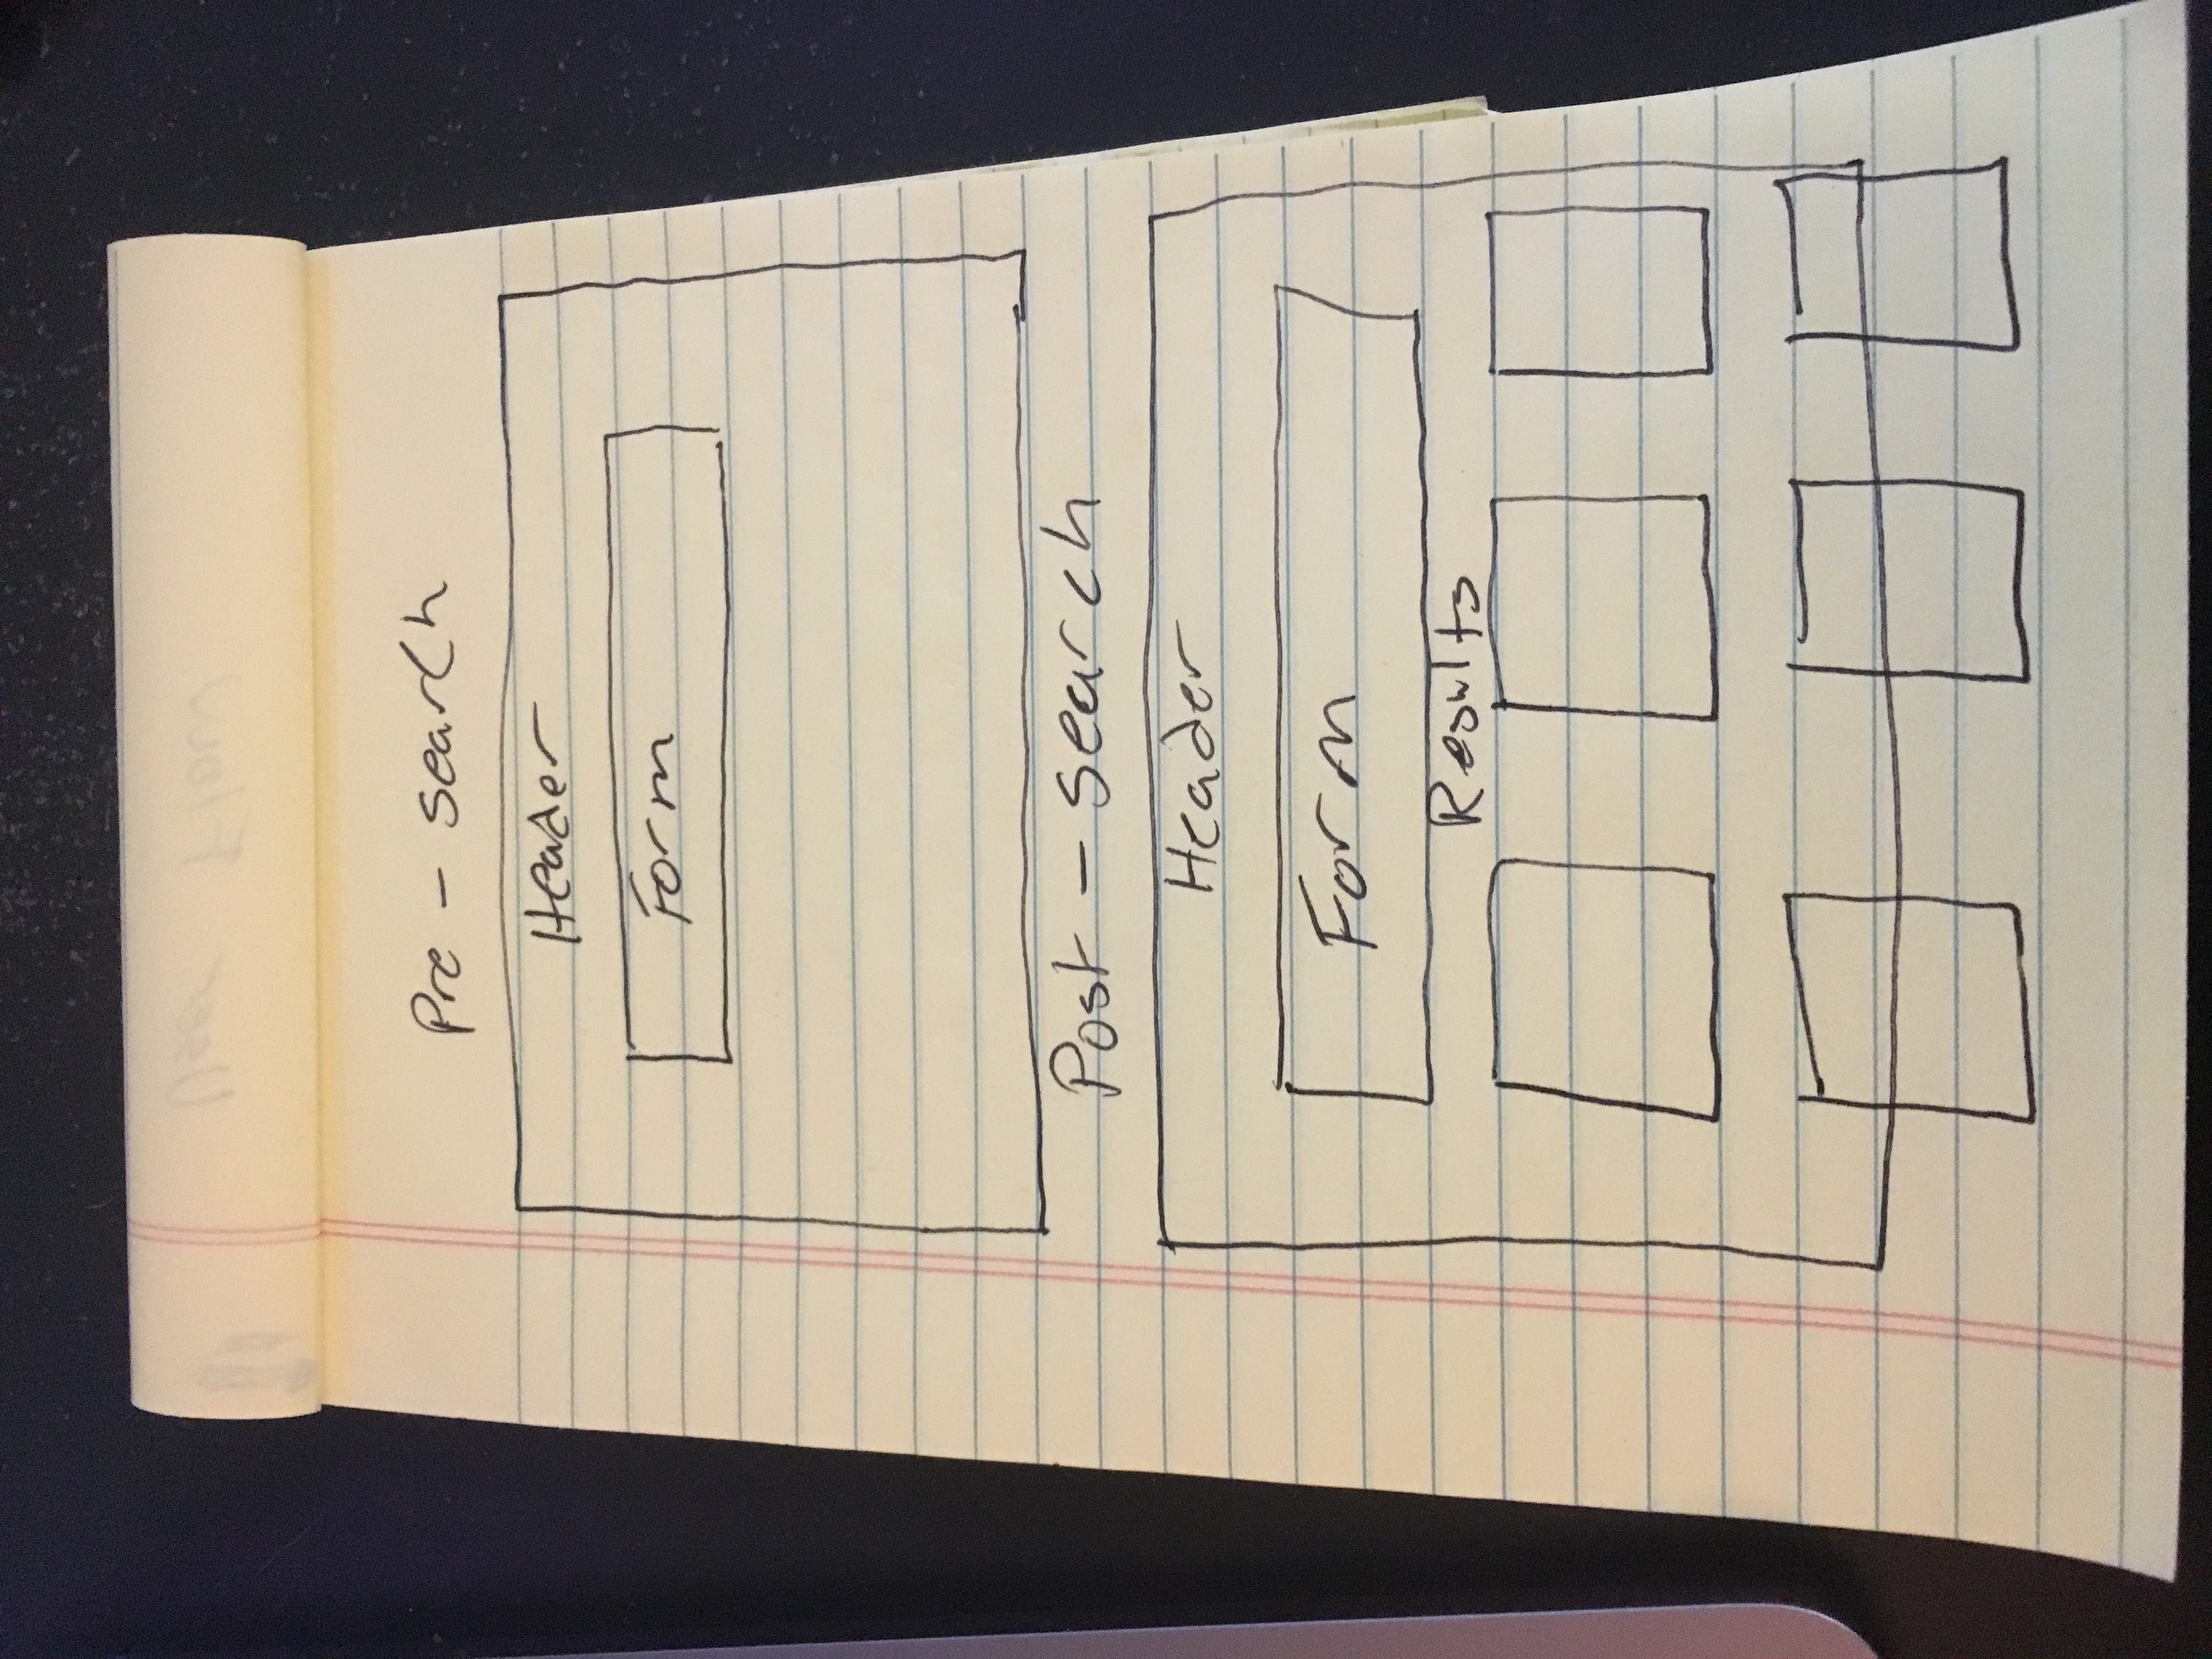 User Flow
Pre - search
Header
Form
Post - search
Header
Form
Results